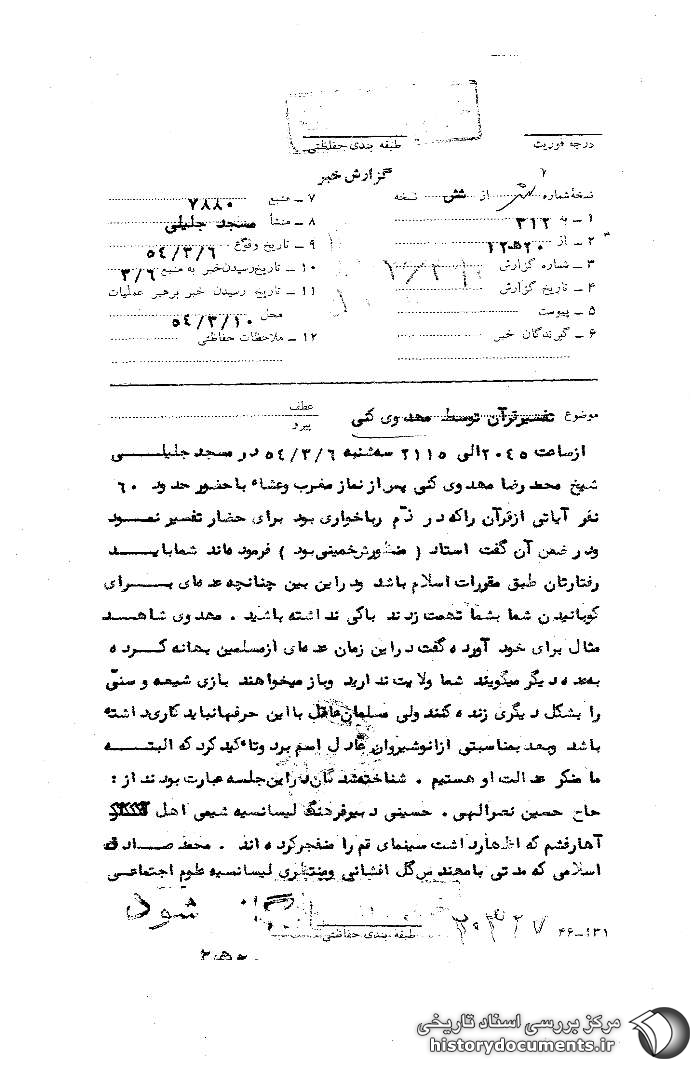 درجه فوریت
طبقه بندی حفاظتی
گزارش خبر
نسخهٔ شماره از شش نسخه
۱ ـ به ۳۱۲
۲ ـ از ۲۰ﻫ۱۲
۳ ـ شماره گزارش
۴ ـ تاریخ گزارش
۵ ـ پیوست
۶ ـ گیرندگان خبر
۷ ـ منبع ۷۸۸۰
۸ ـ منشأ مسجد جلیلی
۹ ـ تاریخ وقوع ۵٤/۳/۶
۱۰ ـ تاریخ رسیدن خبر به منبع ۳/۶
۱۱ ـ تاریخ رسیدن خبر برهبر عملیات
محل ۵٤/۳/۱۰
۱۲ ـ ملاحظات حفاظتی
موضوع تفسیر قرآن توسط مهدوی کنی
عطف
پیرو
از ساعت ۲۰٤۵ الی ۲۱۱۵ سه شنبه ۵٤/۳/۶ در مسجد جلیلی
شیخ محمد رضا مهدوی کنی پس از نماز مغرب وعشاء با حضور حدود ۶۰
نفر آیاتی از قرآن را که در ذم رباخواری بود برای حضار تفسیر نمود
و در ضمن آن گفت استاد ( منظورش خمینی بود ) فرموده اند شما باید
رفتارتان طبق مقررات اسلام باشد و در این بین چنانچه عده ای برای
کوبانیدن شما بشما تهمت زدند باکی نداشته باشید . مهدوی شاهد
مثال برای خود آورده گفت در این زمان عده ای از مسلمین بهانه کرده
بعده دیگر میگویند شما ولایت ندارید وباز میخواهند بازی شیعه و سنّی
را بشکل دیگری زنده کنند ولی مسلمان عاقل با این حرفها نباید کاری داشته
باشد وبعد بمناسبتی از انوشیروان عادل اسم برد وتاکید کرد که البته
ما منکر عدالت او هستیم . شناخته شدگان در این جلسه عبارت بودند از :
حاج حسین نصرالهی . حسینی دبیر فرهنگ لیسانسیه شیمی اهل
آهار فشم که اظهار داشت سینمای قم را منفجر کرده اند . محمد صادق
اسلامی که مدتی با مهندس گل افشانی ومنتظری لیسانسیه علوم اجتماعی
شود
طبقه بندی حفاظتی
۴۶-۱۳۱
مرکز بررسی اسناد تاریخی
historydocuments.ir